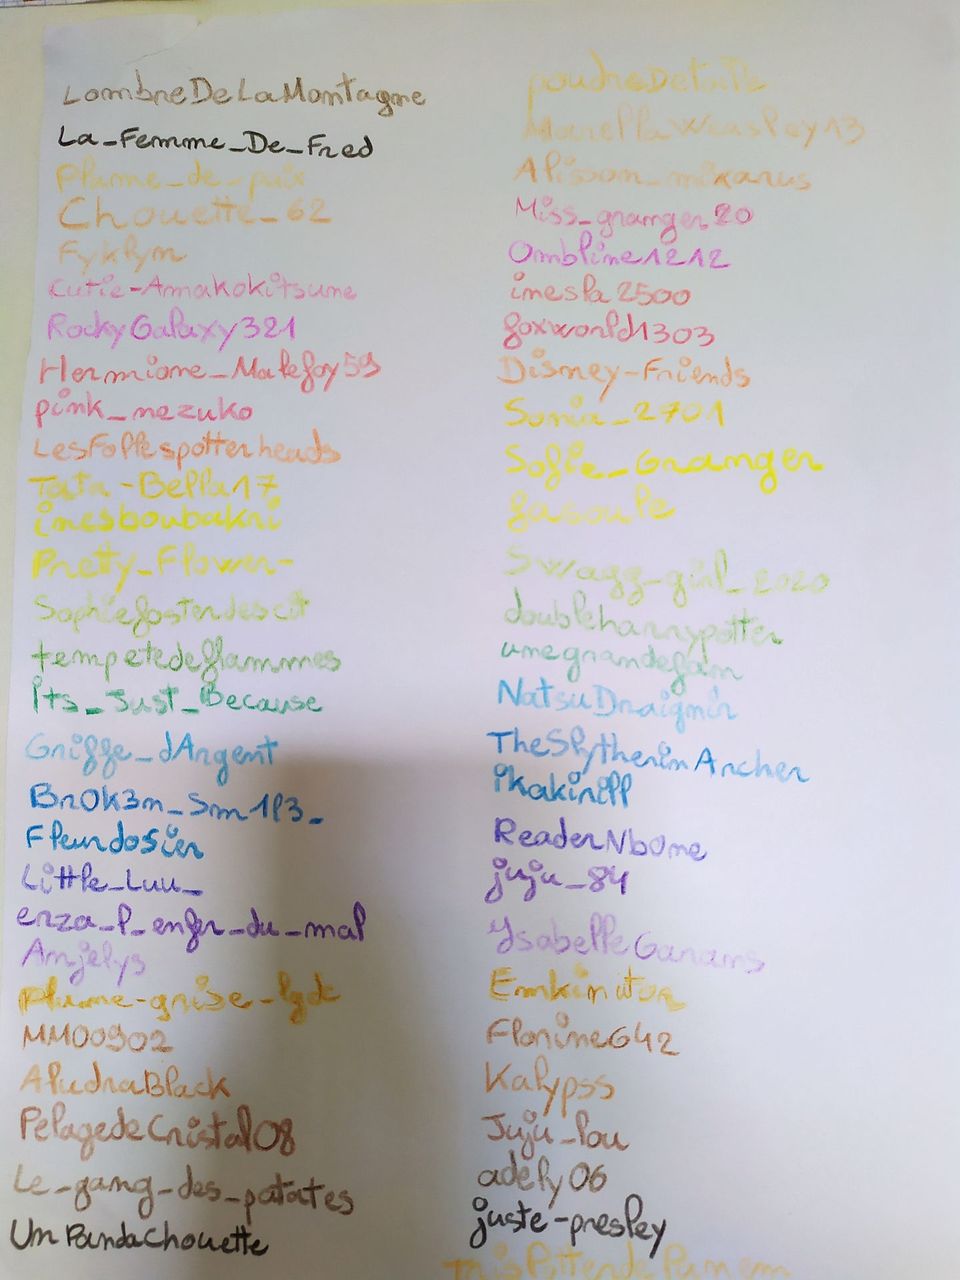 LombreDeLaMontagne
La_Femme_De_Fred
Plume_de_paix
Chouette_62
Fyklym
Cutie-Annakokitsune
RockyGalaxy321
Hermione_Malefoy59
pink_nezuko
LesFollespotterheads
Tata-Bella17
inesboubakri
Pretty_Flower-
Sophiefosterdescit
tempetedeflammes
its_Just_Because
Griffe_dArgent
Br0k3n_Sm1l3_
Fleurdosier
Little_Luu_
erza_l_enfer_du_mal
Amjelys
plume-grise-lgdc
MM00902
AludraBlack
PelagedeCristal08
Le_gang_des_patates
UnPandaChouette
poudreDetoile
MarellaWeasley13
Alisson_mikanus
Miss_granger20
Ombline1212
inesla2500
foxworld1303
Disney-Friends
Sonia_2701
Sofie_Granger
fasoule
Swagg_girl_2020
doubleharrypotter
unegrandefan
NatsuDraignir
TheSlytherinArcher
ikakirill
ReaderNb0ne
juju_84
YsabelleGarans
Emkinator
Florine642
Kalypss
Juju_lou
adely06
juste-presley